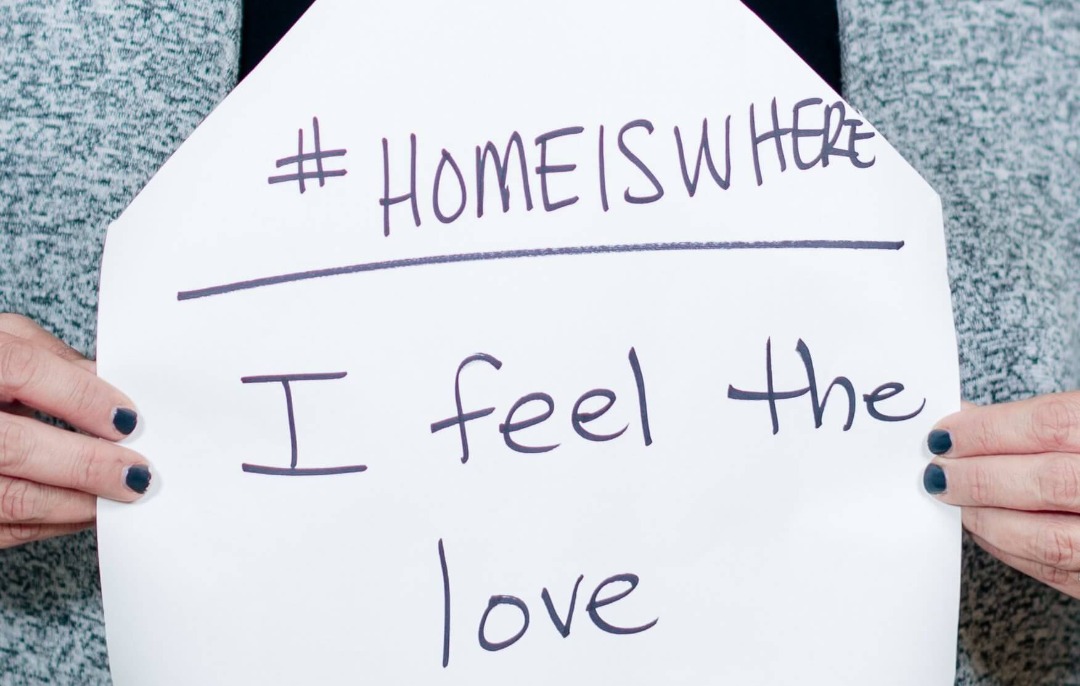 #HOMEISWHERE
I feel the
love